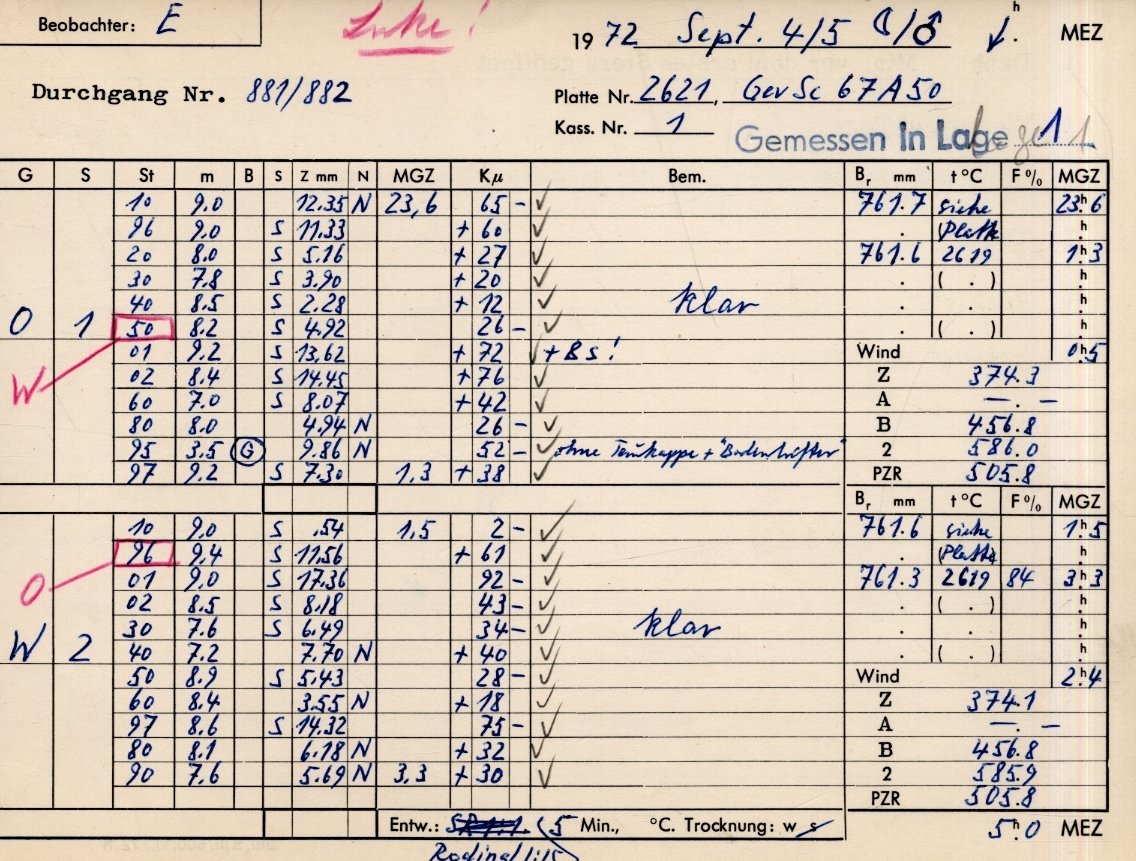 Beobachter: E
19 72 Sept. 4/5 ☾/♂ h MEZ
Durchgang Nr. 881/882
Platte Nr. 2621, GevSc 67A50
Kass. Nr. 1
Gemessen in Lage 1
G S St m B S Z mm N MGZ Kμ Bem. Br mm t °C F % MGZ
10 9.0 12.35 N 23,6 65 - ✓ 761.7 siehe 23h6
96 9.0 S 11.33 + 60 ✓ . Platte h
20 8.0 S 5.16 + 27 ✓ 761.6 2619 1h3
30 7.8 S 3.90 + 20 ✓ . ( . ) h
40 8.5 S 2.28 + 12 ✓ klar . h
O 1 50 8.2 S 4.92 26 - ✓ . ( . ) h
01 9.2 S 13.62 + 72 ✓ + 8 s! Wind 0h5
W 02 8.4 S 14.45 + 76 ✓ Z 374.3
60 7.0 S 8.07 + 42 ✓ A — . —
80 8.0 4.94 N 26 - ✓ B 456.8
95 3.5 G 9.86 N 52 - ✓ ohne 2 586.0
97 9.2 S 7.30 1,3 + 38 ✓ PZR 505.8
Br mm t °C F % MGZ
10 9.0 S .54 1,5 2 - ✓ 761.6 siehe 1h5
96 9.4 S 11.56 + 61 ✓ . Platte h
O 01 9.0 S 17.36 92 - ✓ 761.3 2619 84 3h3
02 8.5 S 8.18 43 - ✓ . ( . ) h
30 7.6 S 6.49 34 - ✓ klar . h
W 2 40 7.2 7.70 N + 40 ✓ . ( . ) h
50 8.9 S 5.43 28 - ✓ Wind 2h4
60 8.4 3.55 N + 18 ✓ Z 374.1
97 8.6 S 14.32 75 - ✓ A — . —
80 8.1 6.18 N + 32 ✓ B 456.8
90 7.6 5.69 N 3,3 + 30 ✓ 2 585.9
PZR 505.8
Entw.: 5 Min., °C. Trocknung: w s 5h0 MEZ
Rodinal 1:15